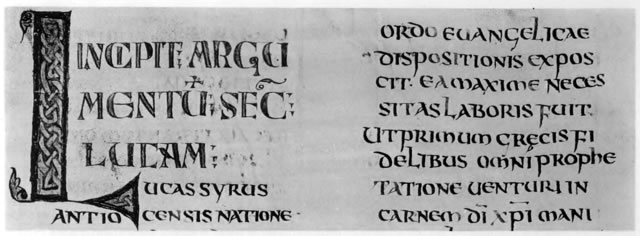 INCIPIT ARGU
MENTŪ: SEC̄:
LUCAM:
LUCAS SYRUS
ANTIOCENSIS NATIONE·
ORDO EUANGELICAE
DISPOSITIONIS EXPOS
CIT· EA MAXIME NECES
SITAS LABORIS FUIT·
UT PRIMUM GRECIS FI
DELIBUS OMNI PROPHE
TATIONE UENTURI IN
CARNEM DI̅ XP̅I MANI